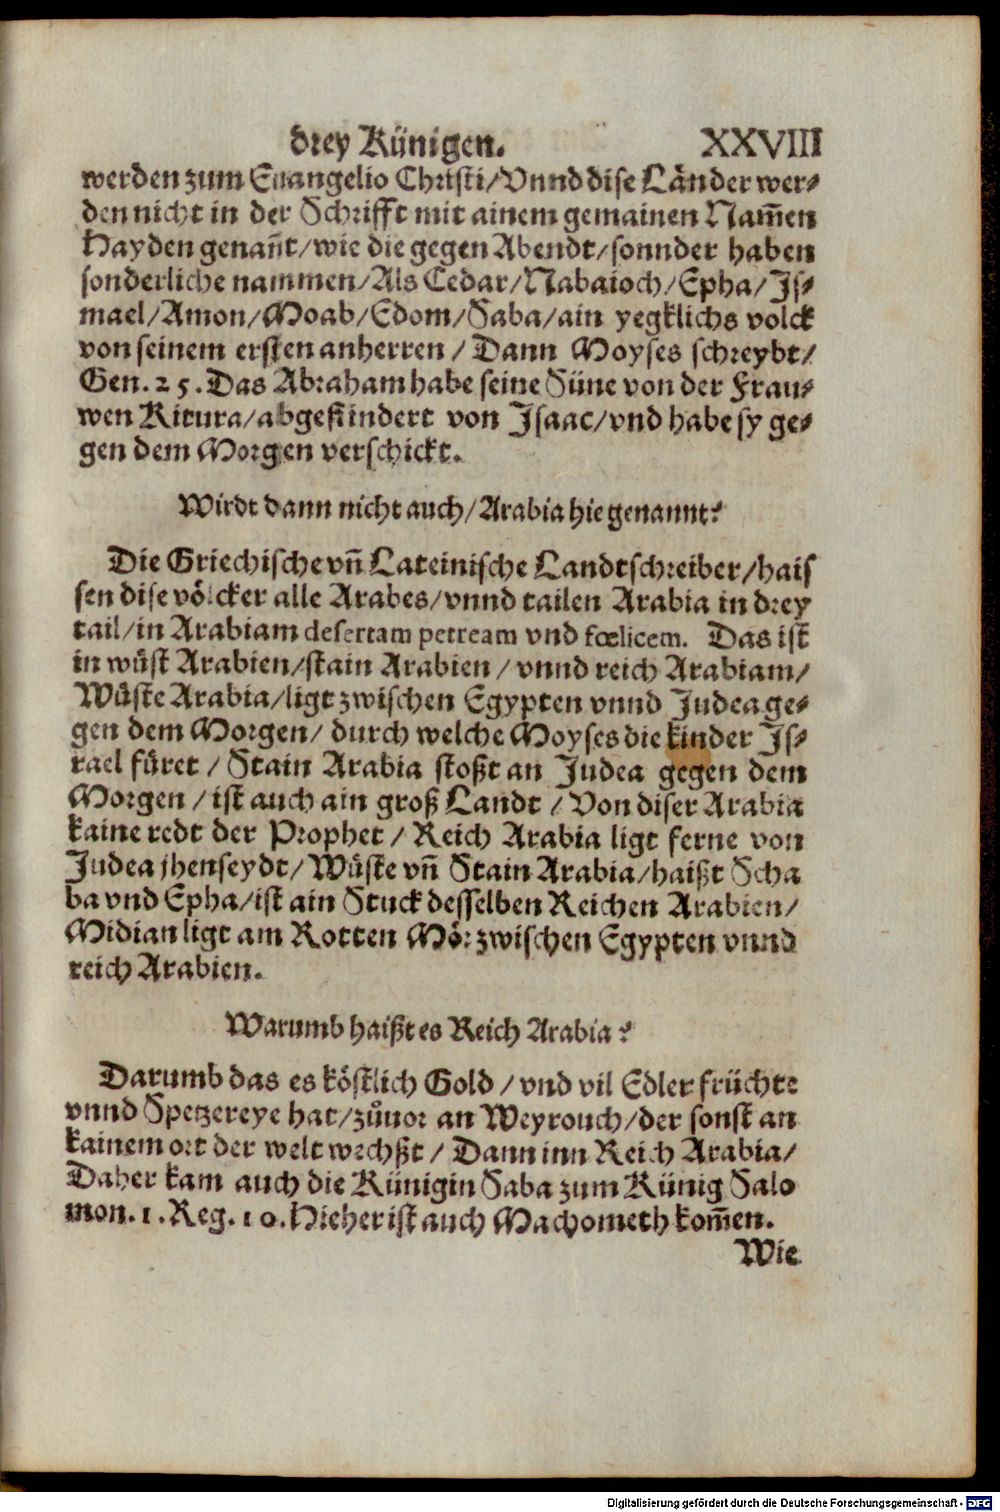 drey Künigen. XXVIII
werden zum Euangelio Christi/Vnnd dise Länder wer⸗
den nicht in der Schrifft mit ainem gemainen Nam̄en
Hayden genan̄t/wie die gegen Abendt/sonnder haben
sonderliche nammen/Als Cedar/Nabaioch/Epha/Is⸗
mael/Amon/Moab/Edom/Saba/ain yegklichs volck
von seinem ersten anherren / Dann Moyses schreybt/
Gen. 25. Das Abraham habe seine Süne von der Frau⸗
wen Kitura/abgesindert von Isaac/vnd habe sy ge⸗
gen dem Morgen verschickt.
Wirdt dann nicht auch/Arabia hie genannt?
Die Griechische vn̄ Lateinische Landtschreiber/hais
sen dise völcker alle Arabes/vnnd tailen Arabia in drey
tail/in Arabiam desertam petream vnd fœlicem. Das ist
in wüst Arabien/stain Arabien / vnnd reich Arabiam/
Wüste Arabia/ligt zwischen Egypten vnnd Judea ge⸗
gen dem Morgen/ durch welche Moyses die kinder Is⸗
rael füret / Stain Arabia stoßt an Judea gegen dem
Morgen / ist auch ain groß Landt / Von diser Arabia
kaine redt der Prophet / Reich Arabia ligt ferne von
Judea jhenseydt/ Wüste vn̄ Stain Arabia/haißt Scha
ba vnd Epha/ist ain Stuck desselben Reichen Arabien/
Midian ligt am Rotten Mör zwischen Egypten vnnd
reich Arabien.
Warumb haißt es Reich Arabia?
Darumb das es köstlich Gold / vnd vil Edler früchte
vnnd Spetzereye hat/zůuor an Weyrouch/der sonst an
kainem ort der welt wechßt / Dann inn Reich Arabia/
Daher kam auch die Künigin Saba zum Künig Salo
mon. 1. Reg. 10. Hieher ist auch Machometh kom̄en.
Wie
Digitalisierung gefördert durch die Deutsche Forschungsgemeinschaft - DFG